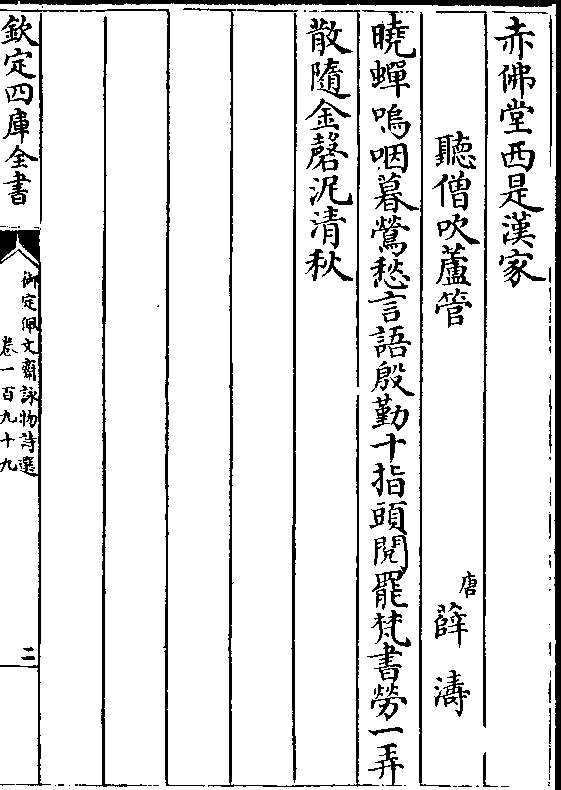 赤佛堂西是漢家
聽僧吹蘆管
唐
薛濤
曉蟬嗚咽暮鶯愁言語殷勤十指頭閱罷梵書勞一弄
散隨金磬泥清秋
欽定四庫全書
御定佩文齋詠物詩選
卷一百九十九
二